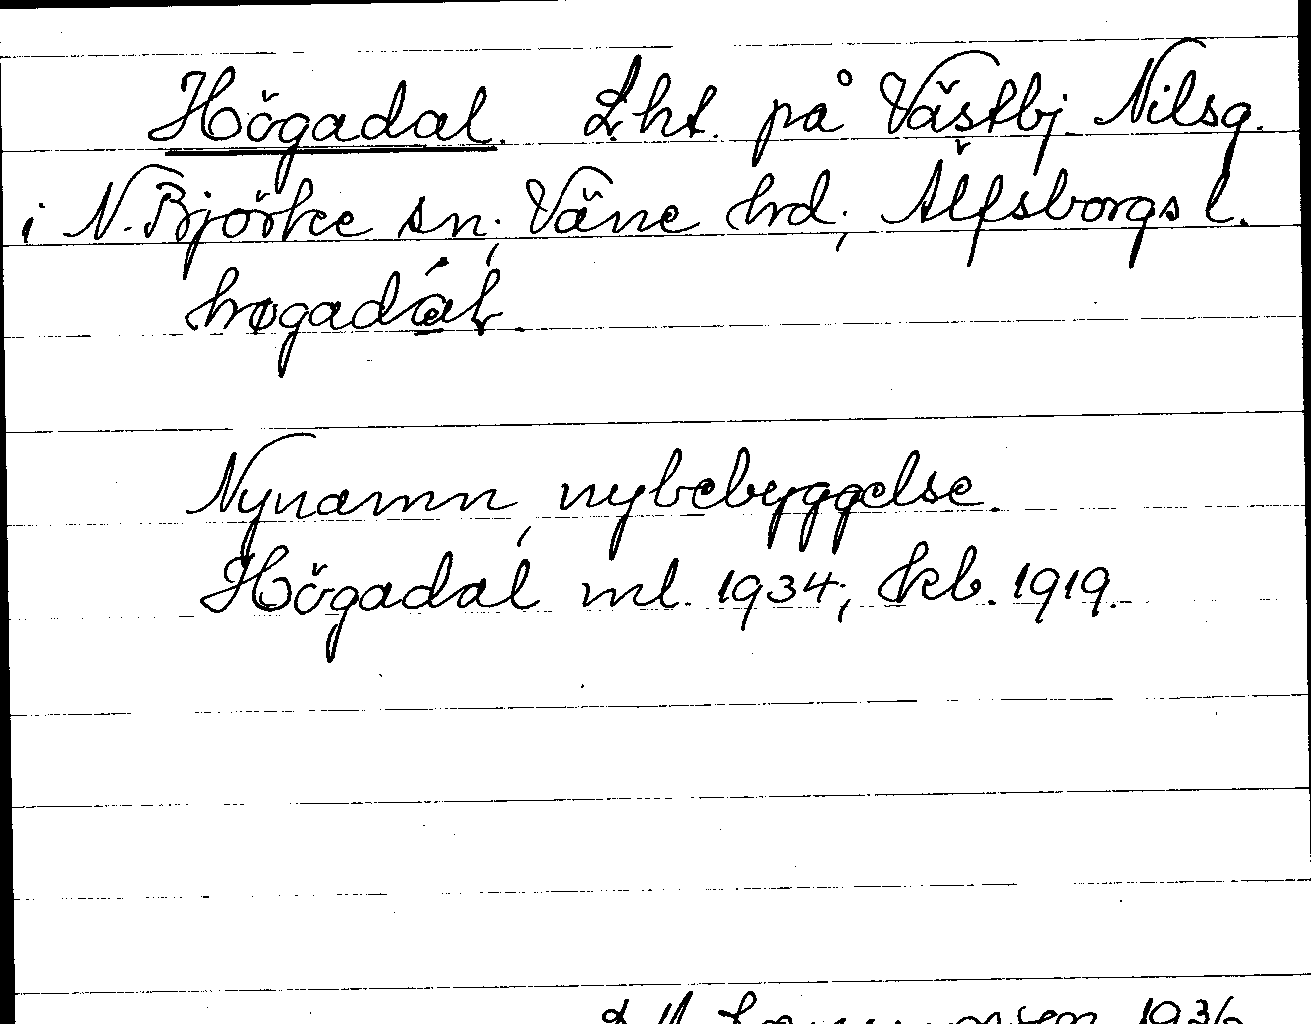 Högadal. Lht. på Västbj. Nilsg.
i N. Björke sn; Väne hrd; Älfsborgs l.
høgadál.
Nynamn, nybebyggelse.
Högadal ml. 1934; kb. 1919.
1936